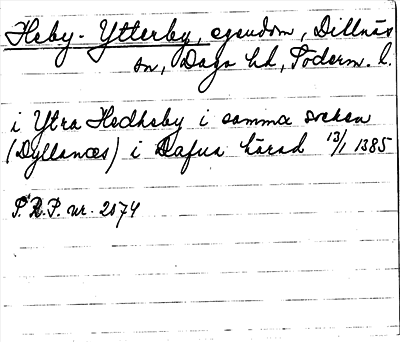 Heby-Ytterby, egendom, Dillnäs
sn, Daga hd, Söderm. l.
i Ytra Hedheby i samma socken
(Dyllanæs) i Dafua härad 13/1 1385
S.R.P. nr. 2074